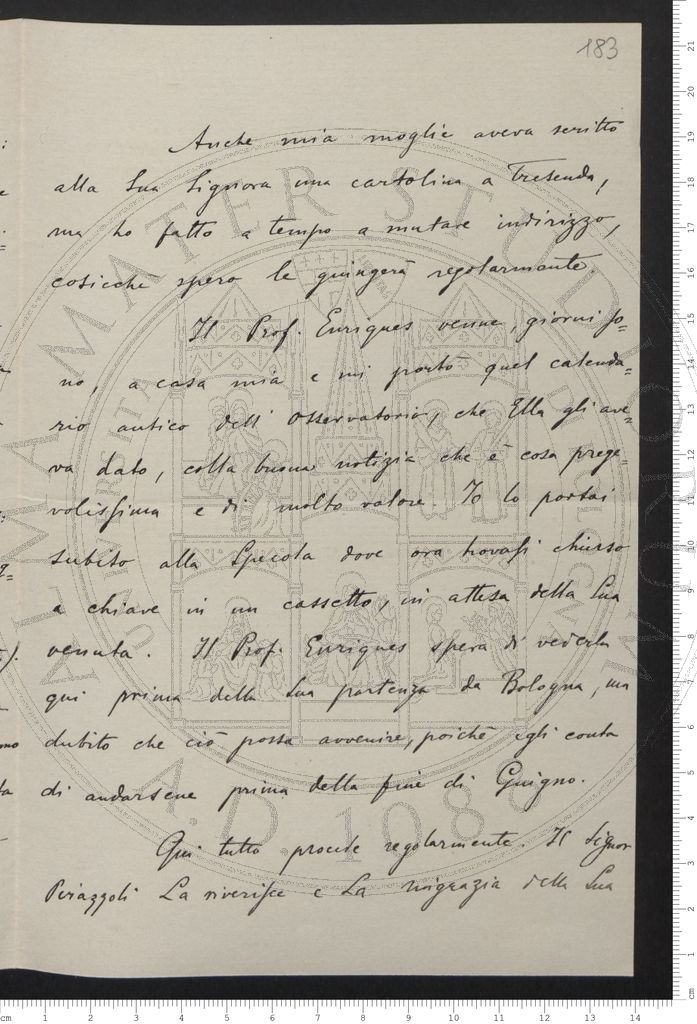 183
Anche mia moglie aveva scritto
alla Sua Signora una cartolina a Tresenda,
ma ho fatto a tempo a mutare indirizzo,
cosicche spero le giungerà regolarmente.
Il Prof. Enriques venne, giorni so=
no, a casa mia e mi portò quel calenda=
rio antico dell'Osservatorio, che Ella gli ave=
va dato, colla buona notizia che è cosa prege=
volissima e di molto valore. Io lo portai
subito alla Specola dove ora trovasi chiuso
a chiave in un cassetto, in attesa della Sua
venuta. Il Prof. Enriques spera di vederla
qui prima della Sua partenza da Bologna, ma
dubito che ciò possa avvenire, poichè egli conta
di andarsene prima della fine di Giugno.
Qui tutto procede regolarmente. Il Signor
Pirazzoli La riverisce e La ringrazia della Sua
ALMA MATER STUDIORUM
A.D. 1088